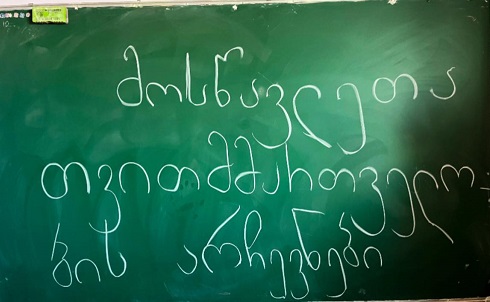 მოსწავლეთა
თვითმმართველო-
ბის არჩევნები